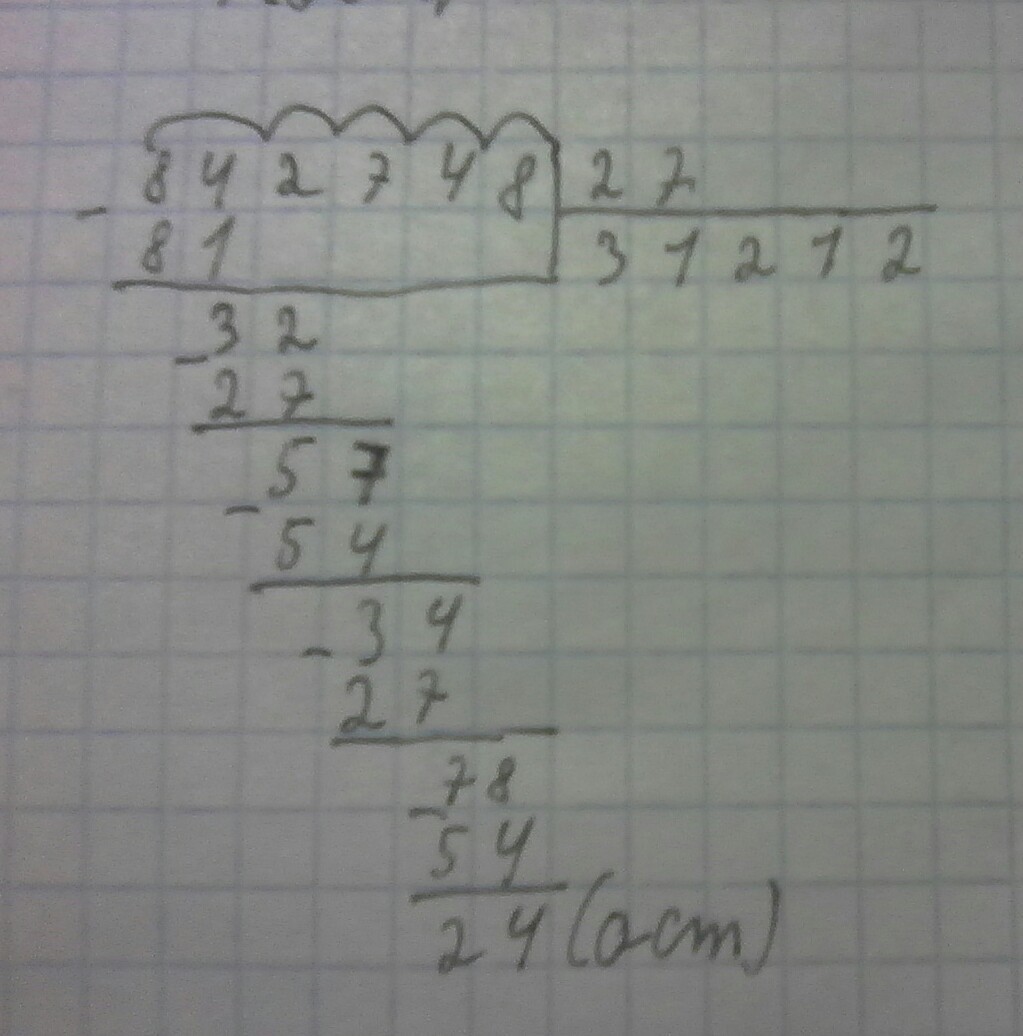 842748 27
- 81 31212
- 32
27
57
- 54
- 34
27
- 78
54
24 (ост)